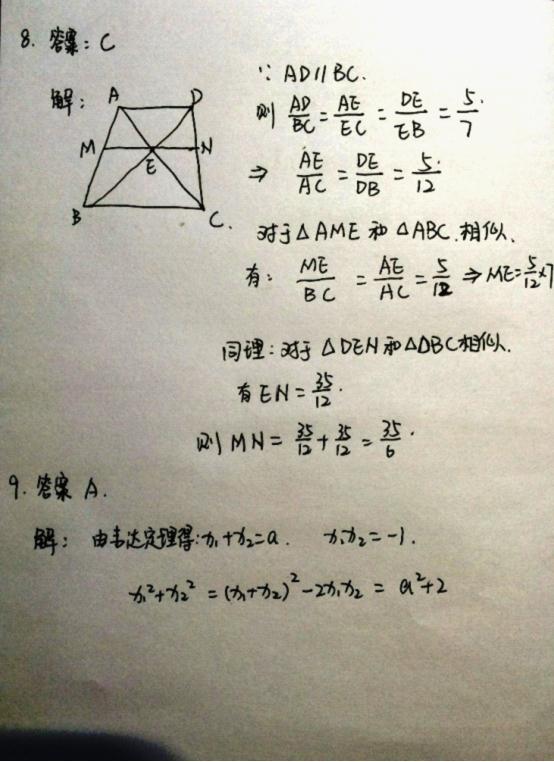 8. 答案: C
解:
A D
M N
E
B C
∵ AD∥BC.
则 AD/BC = AE/EC = DE/EB = 5/7
⇒ AE/AC = DE/DB = 5/12
对于△AME 和 △ABC 相似.
有: ME/BC = AE/AC = 5/12 ⇒ ME = 5/12×7
同理: 对于 △DEN 和 △DBC 相似.
有 EN = 35/12.
则 MN = 35/12 + 35/12 = 35/6.
9. 答案 A.
解: 由韦达定理得: x₁+x₂=a. x₁x₂=-1.
x₁²+x₂² = (x₁+x₂)²-2x₁x₂ = a²+2